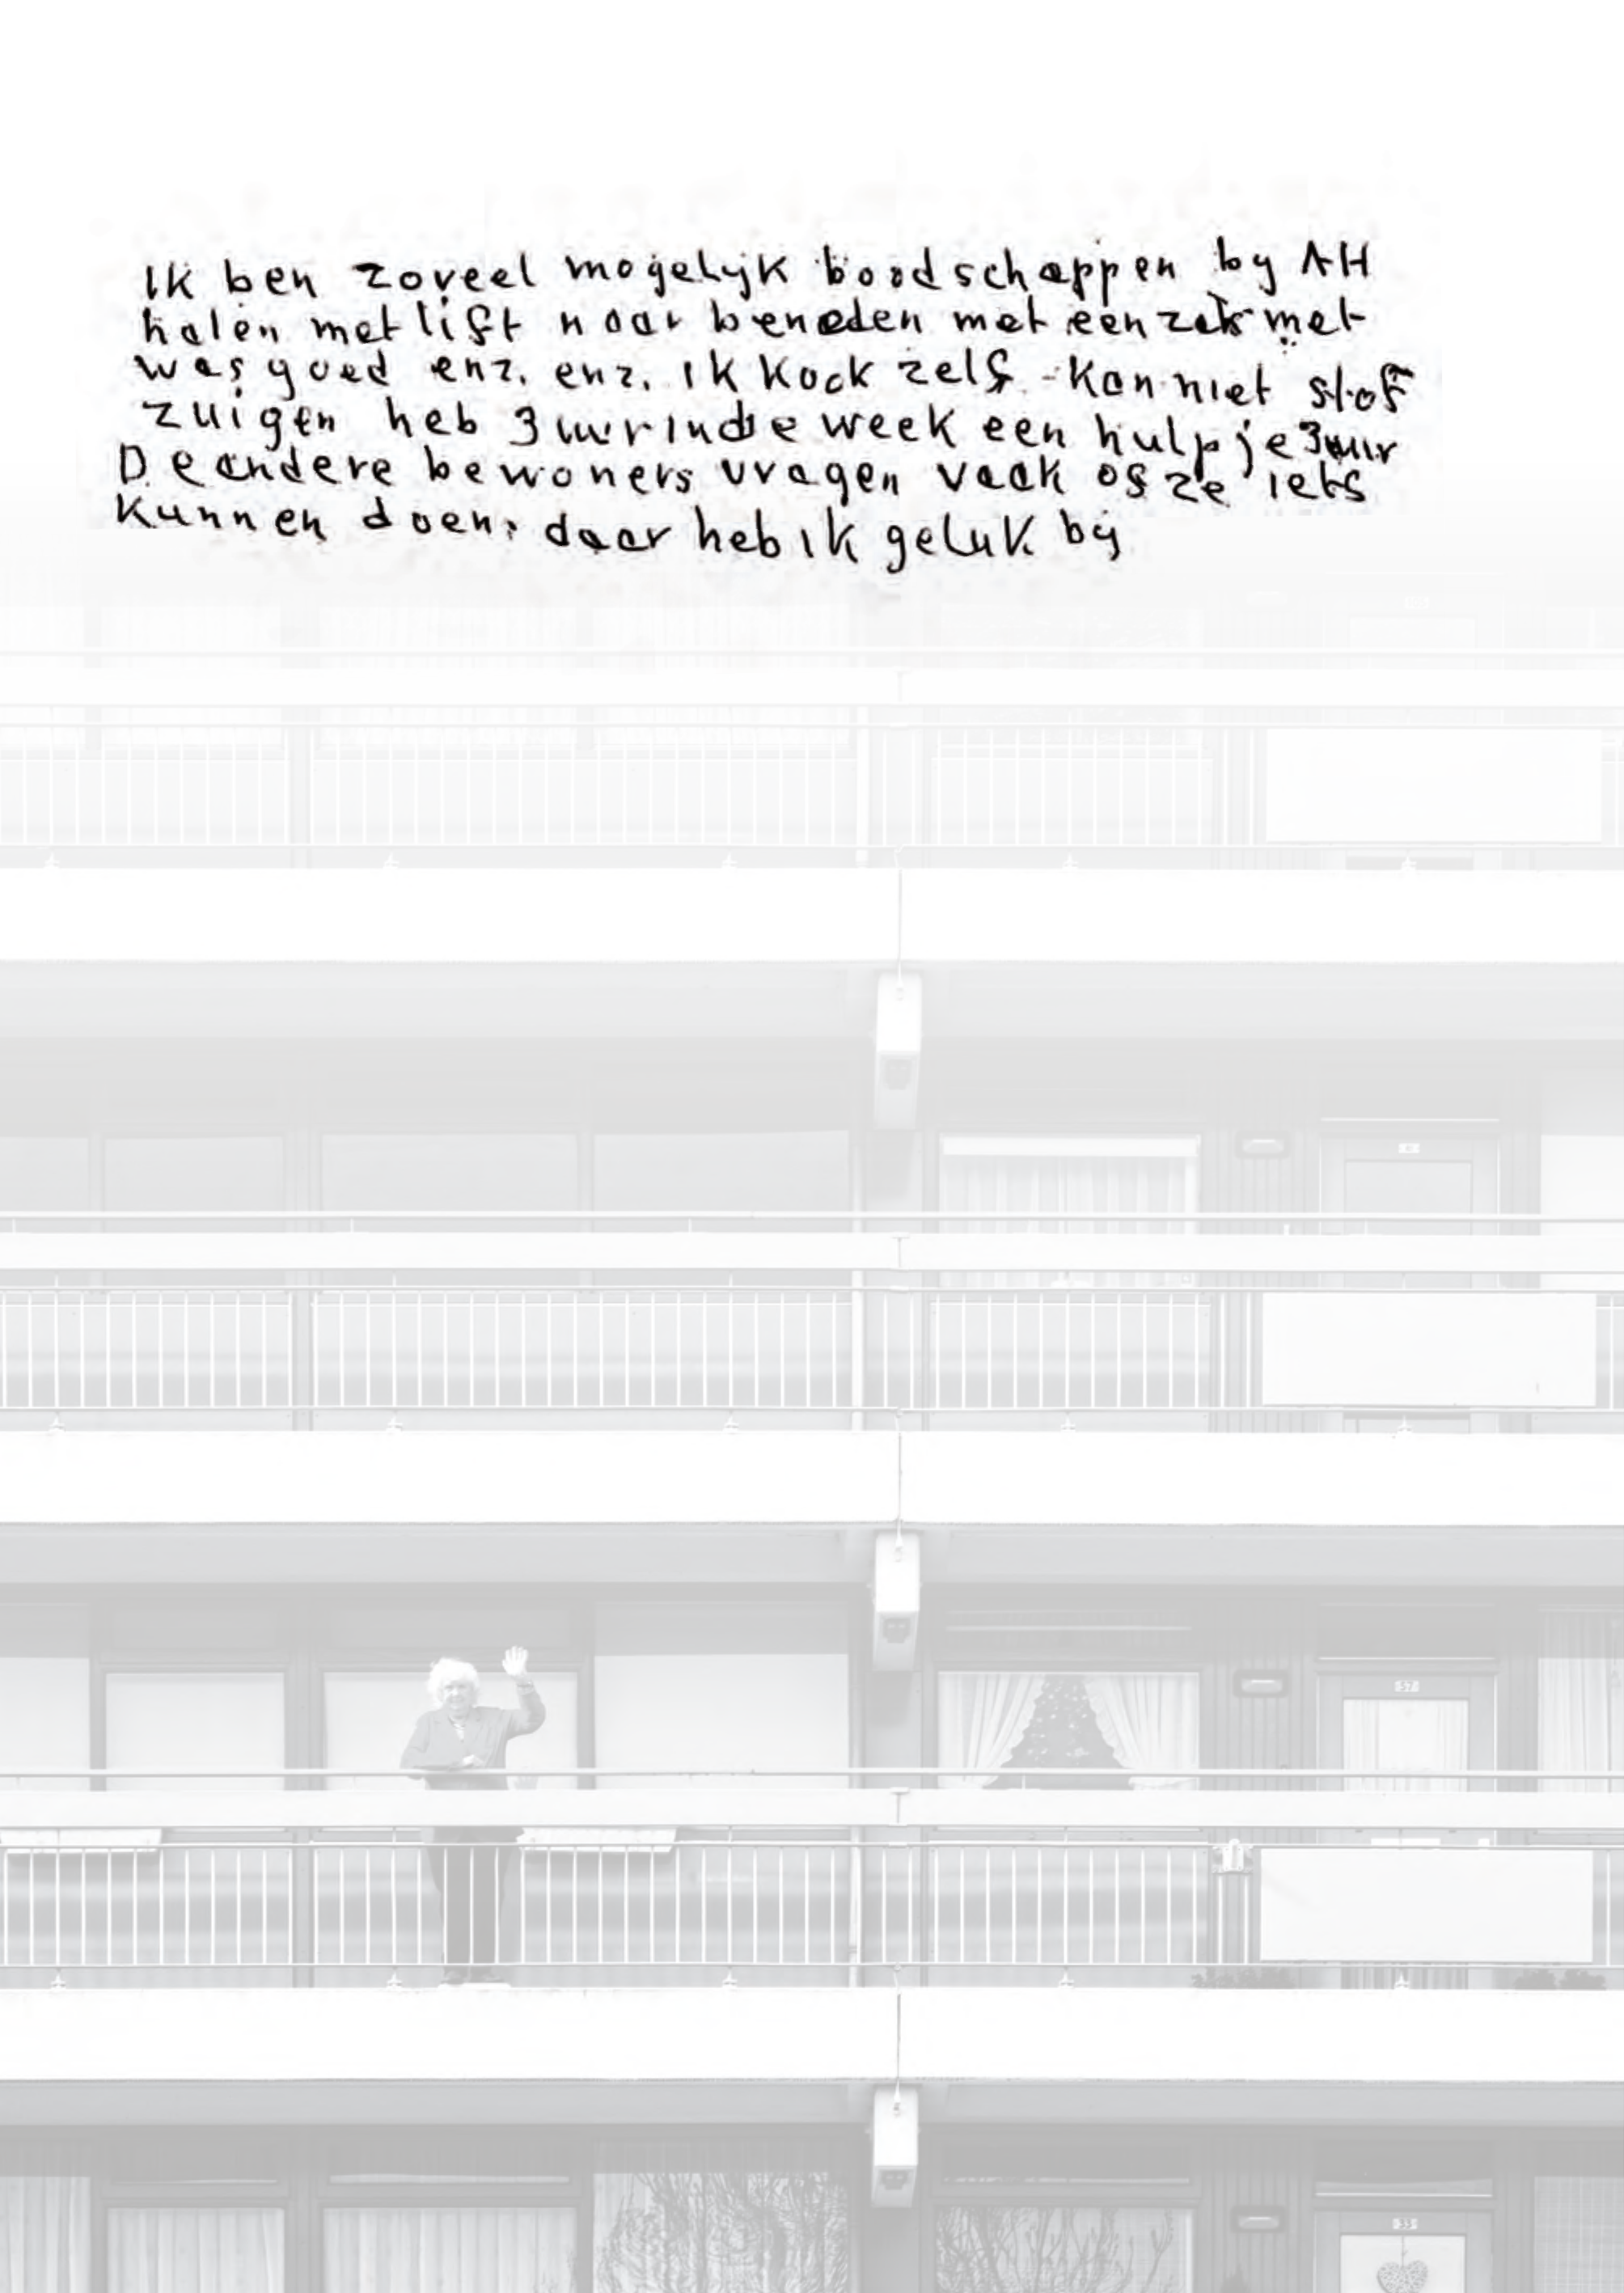 Ik ben zoveel mogelyk boodschappen by AH
halen met lift naar beneden met een zak met
wasgoed enz. enz. Ik kook zelf - Kan niet stof
zuigen heb 3 uur in de week een hulpje 3 uur
De andere bewoners vragen vaak of ze iets
kunnen doen. daar heb ik geluk bij
57
33